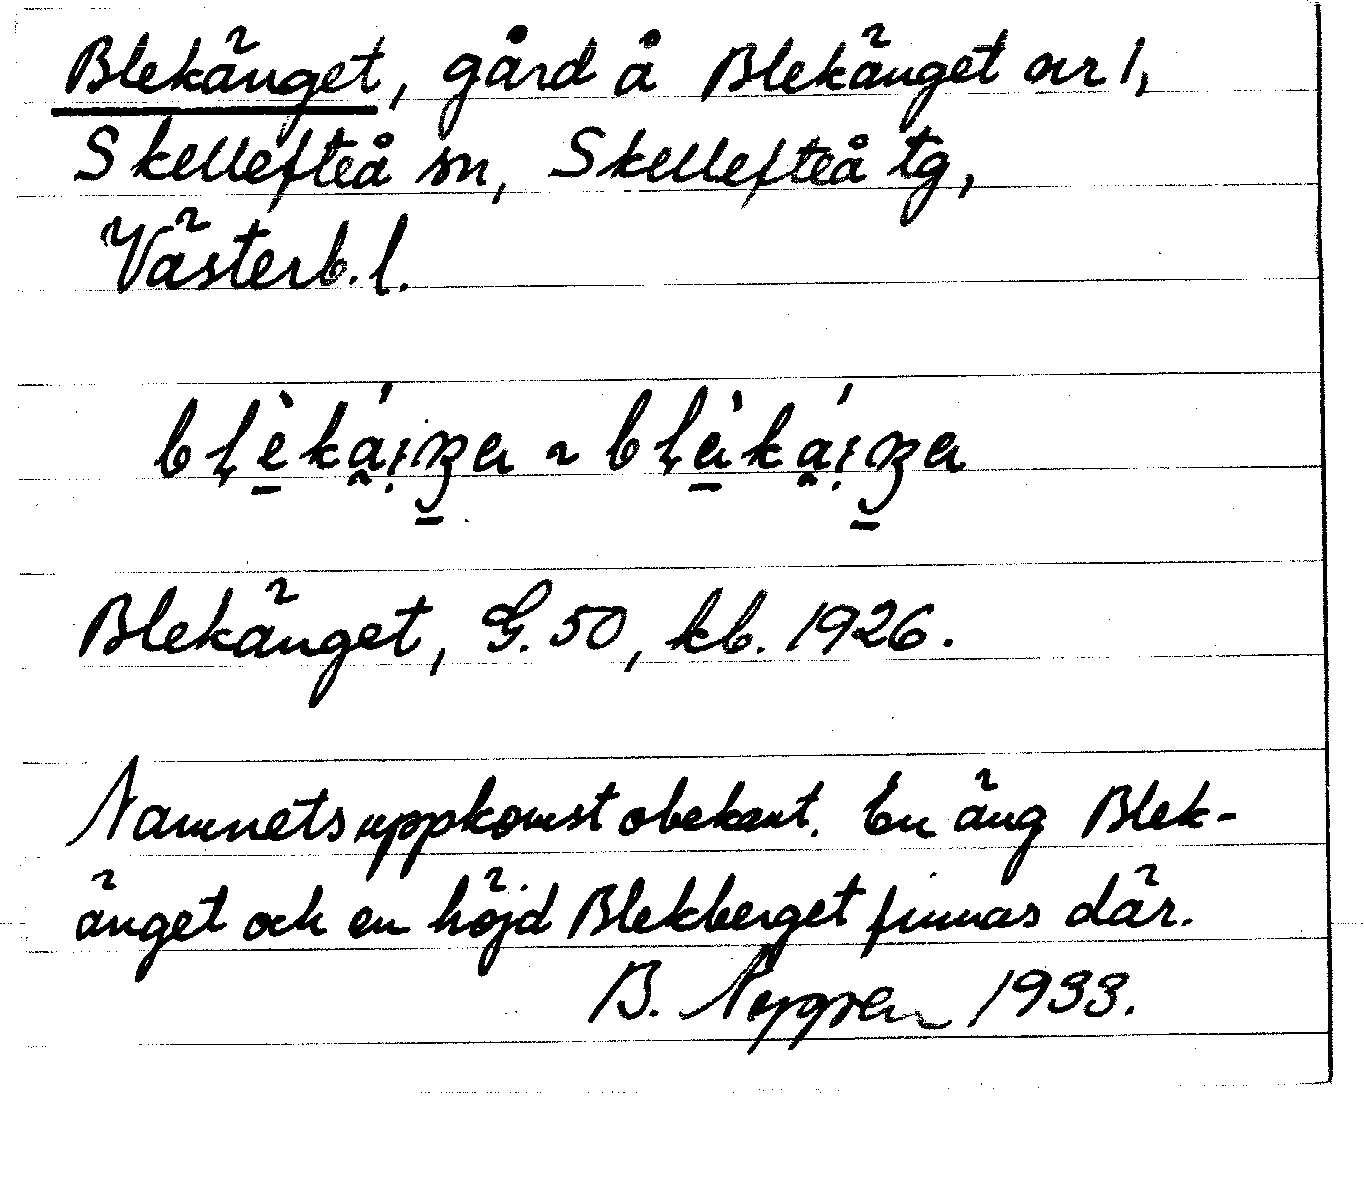 Blekänget, gård å Blekänget nr 1,
Skellefteå sn, Skellefteå tg,
Västerb. l.
Blekänget, G. 50, kb. 1926.
Namnets uppkomst obekant. En äng Blek-
änget och en höjd Blekberget finnas där.
B. Nygren 1933.